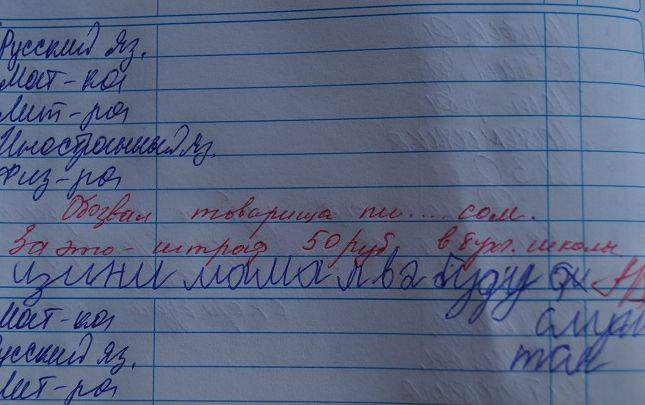 Русский яз.
Мат-ка
Лит-ра
Иностранный яз.
Физ-ра
Обозвал товарища пи....сом.
За это - штраф 50 руб. в бухг. школы
изини мама я ва буду
Мат-ка
Русский яз.
Лит-ра